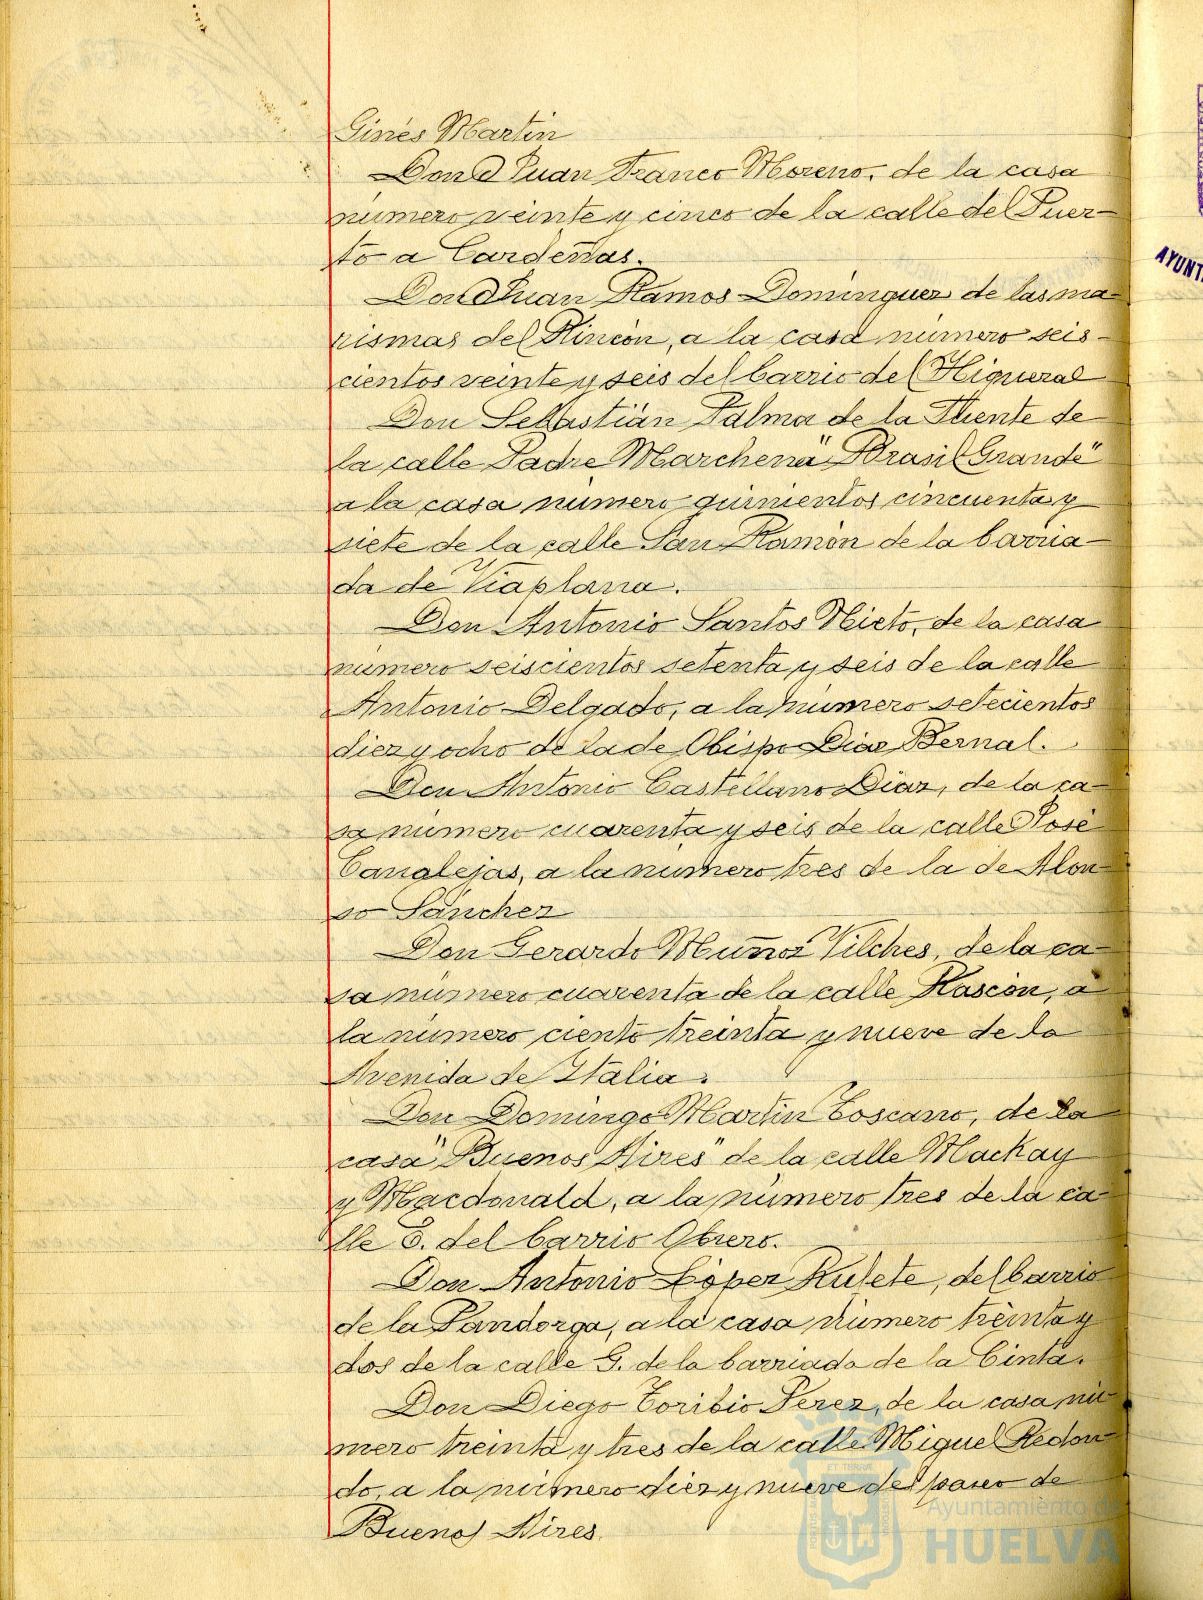 Ginés Martin
Don Juan Franco Moreno, de la casa
número veinte y cinco de la calle del Puer-
to a Cardeñas.
Don Juan Ramos Dominguez de las ma-
rismas del Rincón, a la casa número seis-
cientos veinte y seis del barrio del Higueral
Don Sebastián Palma de la Fuente de
la calle Padre Marchena "Brasil Grande"
a la casa número quinientos cincuenta y
siete de la calle San Ramón de la barria-
da de Viaplana.
Don Antonio Santos Nieto, de la casa
número seiscientos setenta y seis de la calle
Antonio Delgado, a la número setecientos
diez y ocho de la de Obispo Diaz Bernal.
Don Antonio Castellano Diaz, de la ca-
sa número cuarenta y seis de la calle José
Canalejas, a la número tres de la de Alon-
so Sánchez
Don Gerardo Muñoz Vilches, de la ca-
sa número cuarenta de la calle Rascón, a
la número ciento treinta y nueve de la
Avenida de Italia.
Don Domingo Martin Toscano, de la
casa "Buenos Aires" de la calle Mackay
y Macdonald, a la número tres de la ca-
lle E. del barrio Obrero.
Don Antonio López Rufete, del barrio
de la Pandorga, a la casa número treinta y
dos de la calle G. de la barriada de la Cinta.
Don Diego Toribio Perez, de la casa nú-
mero treinta y tres de la calle Miguel Redon-
do, a la número diez y nueve del paseo de
Buenos Aires.
Ayuntamiento de
HUELVA